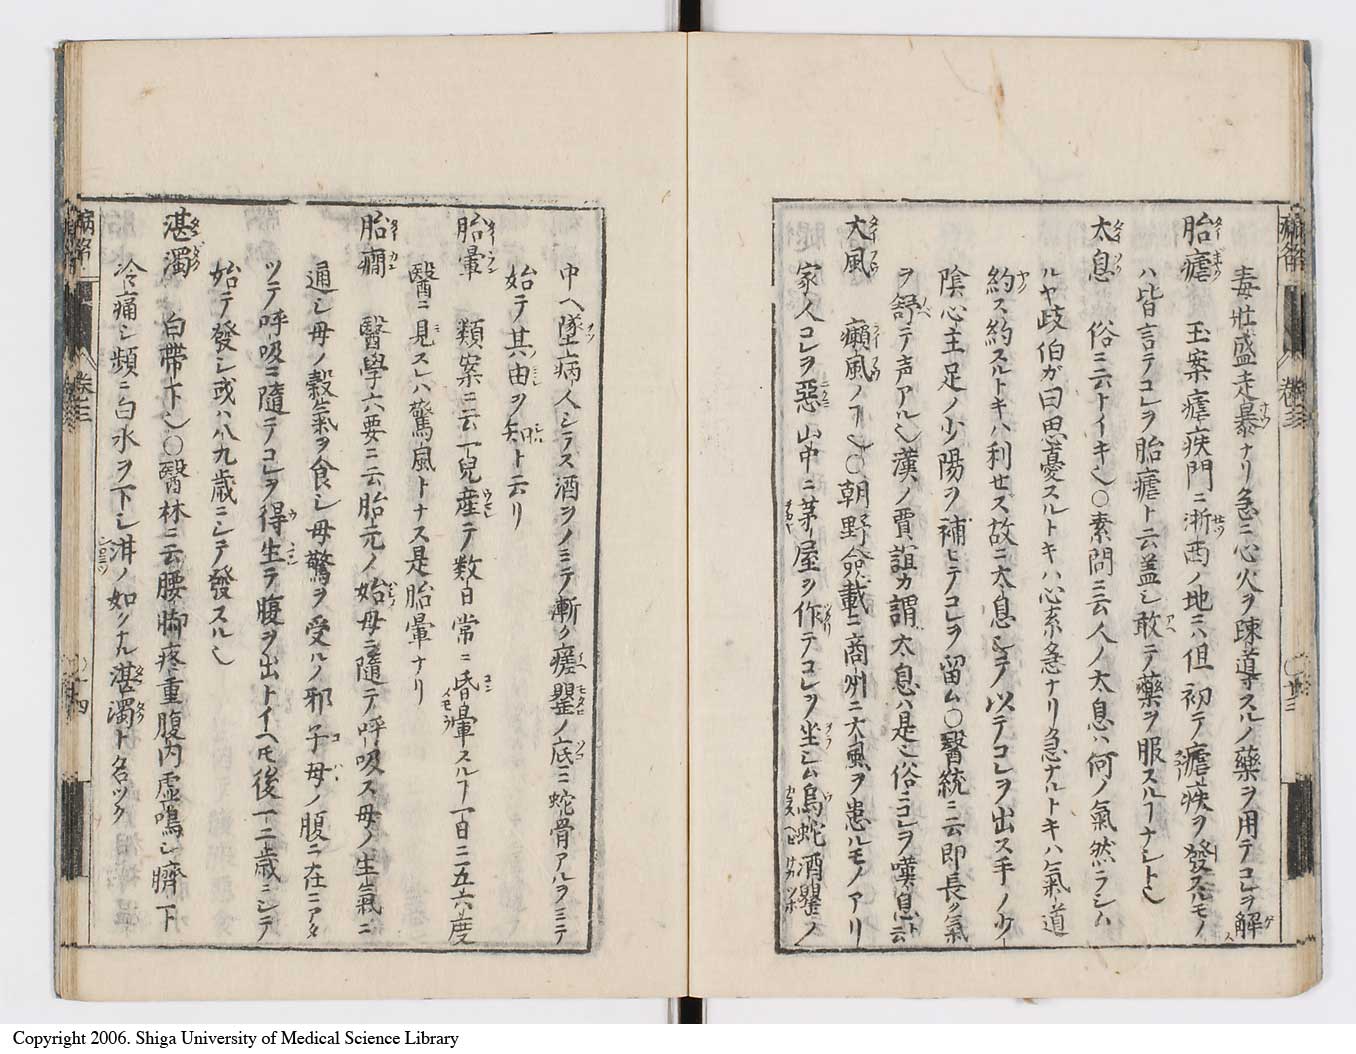 毒壯盛走暴ナリ急ニ心火ヲ疎導スルノ藥ヲ用テコレヲ解
胎瘧 玉案瘧疾門ニ浙西ノ地ニハ但初テ瘧疾ヲ發スルモノ
ハ皆言テコレヲ胎瘧ト云盖シ敢テ藥ヲ服スルヿナシト也
太息 俗ニ云トイキ也○素問ニ云人ノ太息ハ何ノ氣然ラシム
ルヤ歧伯ガ曰思憂スルトキハ心系急ナリ急ナルトキハ氣道
約ス約スルトキハ利セス故ニ太息シテ以テコレヲ出ス手ノ少
陰心主足ノ少陽ヲ補ヒテコレヲ留ム○醫統ニ云即長ク氣
ヲ舒テ声アル也漢ノ賈誼カ謂太息ハ是也俗ニコレヲ嘆息ト云
大風 癩風ノヿ也○朝野僉載ニ商州ニ大風ヲ患ルモノアリ
家人コレヲ惡山中ニ茅屋ヲ作テコレヲ坐シム烏蛇酒罌ノ
病名 卷三 ○廿三
中ヘ墜病人シラス酒ヲノミテ漸ク瘥罌ノ底ニ蛇骨アルヲミテ
始テ其由ヲ知ト云リ
胎暈 類案ニ云一兒産テ数日常ニ昏暈スルヿ一日ニ五六度
醫ニ見スレハ驚風トナス是胎暈ナリ
胎癇 醫學六要ニ云胎元ノ始母ニ隨テ呼吸ス母ノ生氣ニ
通シ母ノ穀氣ヲ食シ母驚ヲ受ルノ邪子母ノ腹ニ在ニアタ
ツテ呼吸ニ隨テコレヲ得生テ腹ヲ出トイヘモ後一二歳ニシテ
始テ發シ或ハ八九歳ニシテ發スル也
湛濁 白帯下也○醫林ニ云腰脚疼重腹内虚鳴シ臍下
冷痛シ頻ニ白水ヲ下シ泔ノ如クナル湛濁ト名ツク
病名 卷三 ○廿四
Copyright 2006. Shiga University of Medical Science Library